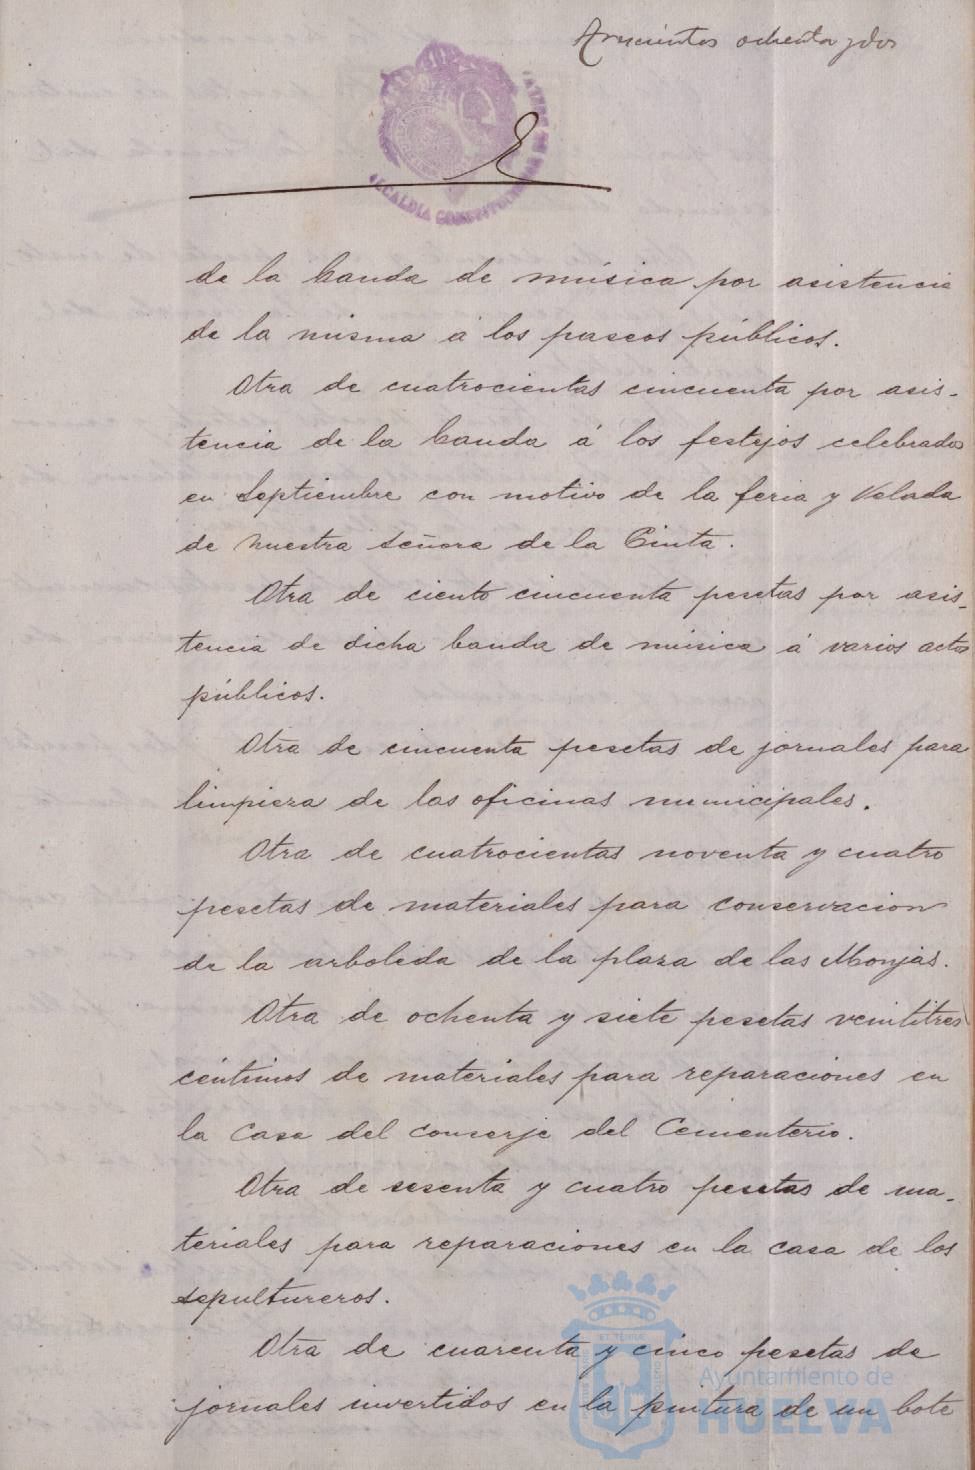 ochenta y dos
ALCALDIA CONSTITUCIONAL DE HUELVA
de la banda de música por asistencia
de la misma á los paseos públicos.
Otra de cuatrocientas cincuenta por asis-
tencia de la banda á los festejos celebrados
en Septiembre con motivo de la feria y Velada
de Nuestra Señora de la Cinta.
Otra de ciento cincuenta pesetas por asis-
tencia de dicha banda de música á varios actos
públicos.
Otra de cincuenta pesetas de jornales para
limpieza de las oficinas municipales.
Otra de cuatrocientas noventa y cuatro
pesetas de materiales para conservacion
de la arboleda de la plaza de las Monjas.
Otra de ochenta y siete pesetas veintitres
céntimos de materiales para reparaciones en
la Casa del conserje del Cementerio.
Otra de sesenta y cuatro pesetas de ma-
teriales para reparaciones en la casa de los
sepultureros.
Otra de cuarenta y cinco pesetas de
jornales invertidos en la pintura de un bote
Ayuntamiento de
HUELVA